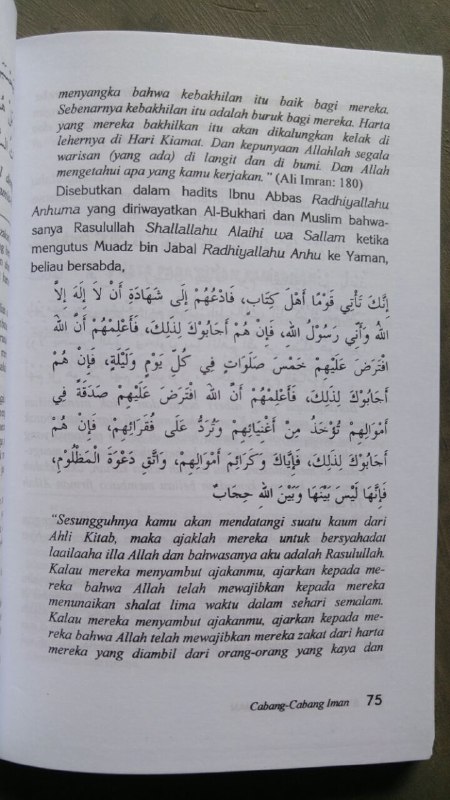 menyangka bahwa kebakhilan itu baik bagi mereka.
Sebenarnya kebakhilan itu adalah buruk bagi mereka. Harta
yang mereka bakhilkan itu akan dikalungkan kelak di
lehernya di Hari Kiamat. Dan kepunyaan Allahlah segala
warisan (yang ada) di langit dan di bumi. Dan Allah
mengetahui apa yang kamu kerjakan." (Ali Imran: 180)
Disebutkan dalam hadits Ibnu Abbas Radhiyallahu
Anhuma yang diriwayatkan Al-Bukhari dan Muslim bahwa-
sanya Rasulullah Shallallahu Alaihi wa Sallam ketika
mengutus Muadz bin Jabal Radhiyallahu Anhu ke Yaman,
beliau bersabda,
إِنَّكَ تَأْتِي قَوْمًا أَهْلَ كِتَابٍ، فَادْعُهُمْ إِلَى شَهَادَةِ أَنْ لَا إِلَهَ إِلَّا
اللهُ وَأَنِّي رَسُوْلُ اللهِ، فَإِنْ هُمْ أَجَابُوْكَ لِذَلِكَ، فَأَعْلِمْهُمْ أَنَّ اللهَ
افْتَرَضَ عَلَيْهِمْ خَمْسَ صَلَوَاتٍ فِي كُلِّ يَوْمٍ وَلَيْلَةٍ، فَإِنْ هُمْ
أَجَابُوْكَ لِذَلِكَ، فَأَعْلِمْهُمْ أَنَّ اللهَ افْتَرَضَ عَلَيْهِمْ صَدَقَةً فِي
أَمْوَالِهِمْ تُؤْخَذُ مِنْ أَغْنِيَائِهِمْ وَتُرَدُّ عَلَى فُقَرَائِهِمْ، فَإِنْ هُمْ
أَجَابُوْكَ لِذَلِكَ، فَإِيَّاكَ وَكَرَائِمَ أَمْوَالِهِمْ، وَاتَّقِ دَعْوَةَ الْمَظْلُوْمِ،
فَإِنَّهَا لَيْسَ بَيْنَهَا وَبَيْنَ اللهِ حِجَابٌ
"Sesungguhnya kamu akan mendatangi suatu kaum dari
Ahli Kitab, maka ajaklah mereka untuk bersyahadat
laailaaha illa Allah dan bahwasanya aku adalah Rasulullah.
Kalau mereka menyambut ajakanmu, ajarkan kepada me-
reka bahwa Allah telah mewajibkan kepada mereka
menunaikan shalat lima waktu dalam sehari semalam.
Kalau mereka menyambut ajakanmu, ajarkan kepada me-
reka bahwa Allah telah mewajibkan mereka zakat dari harta
mereka yang diambil dari orang-orang yang kaya dan
Cabang-Cabang Iman 75